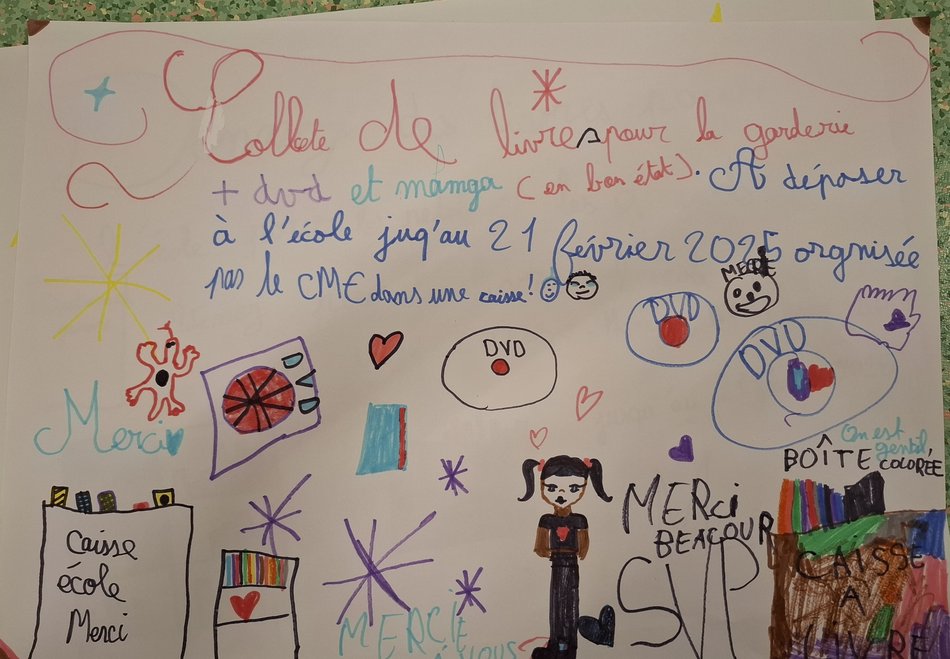 Collecte de livres pour la garderie
+ dvd et mamga (en bon état). A déposer
à l'école juq'au 21 février 2025 orgnisée
par le CME dans une caisse!
MERCIE
DVD
DVD
DVD
DVD
Merci
On est
gentil,
BOÎTE COLORÉE
MERCi
BEACOUR
SVP
caisse
école
Merci
CAISSE
A
LIVRE
MERCIE
à vous